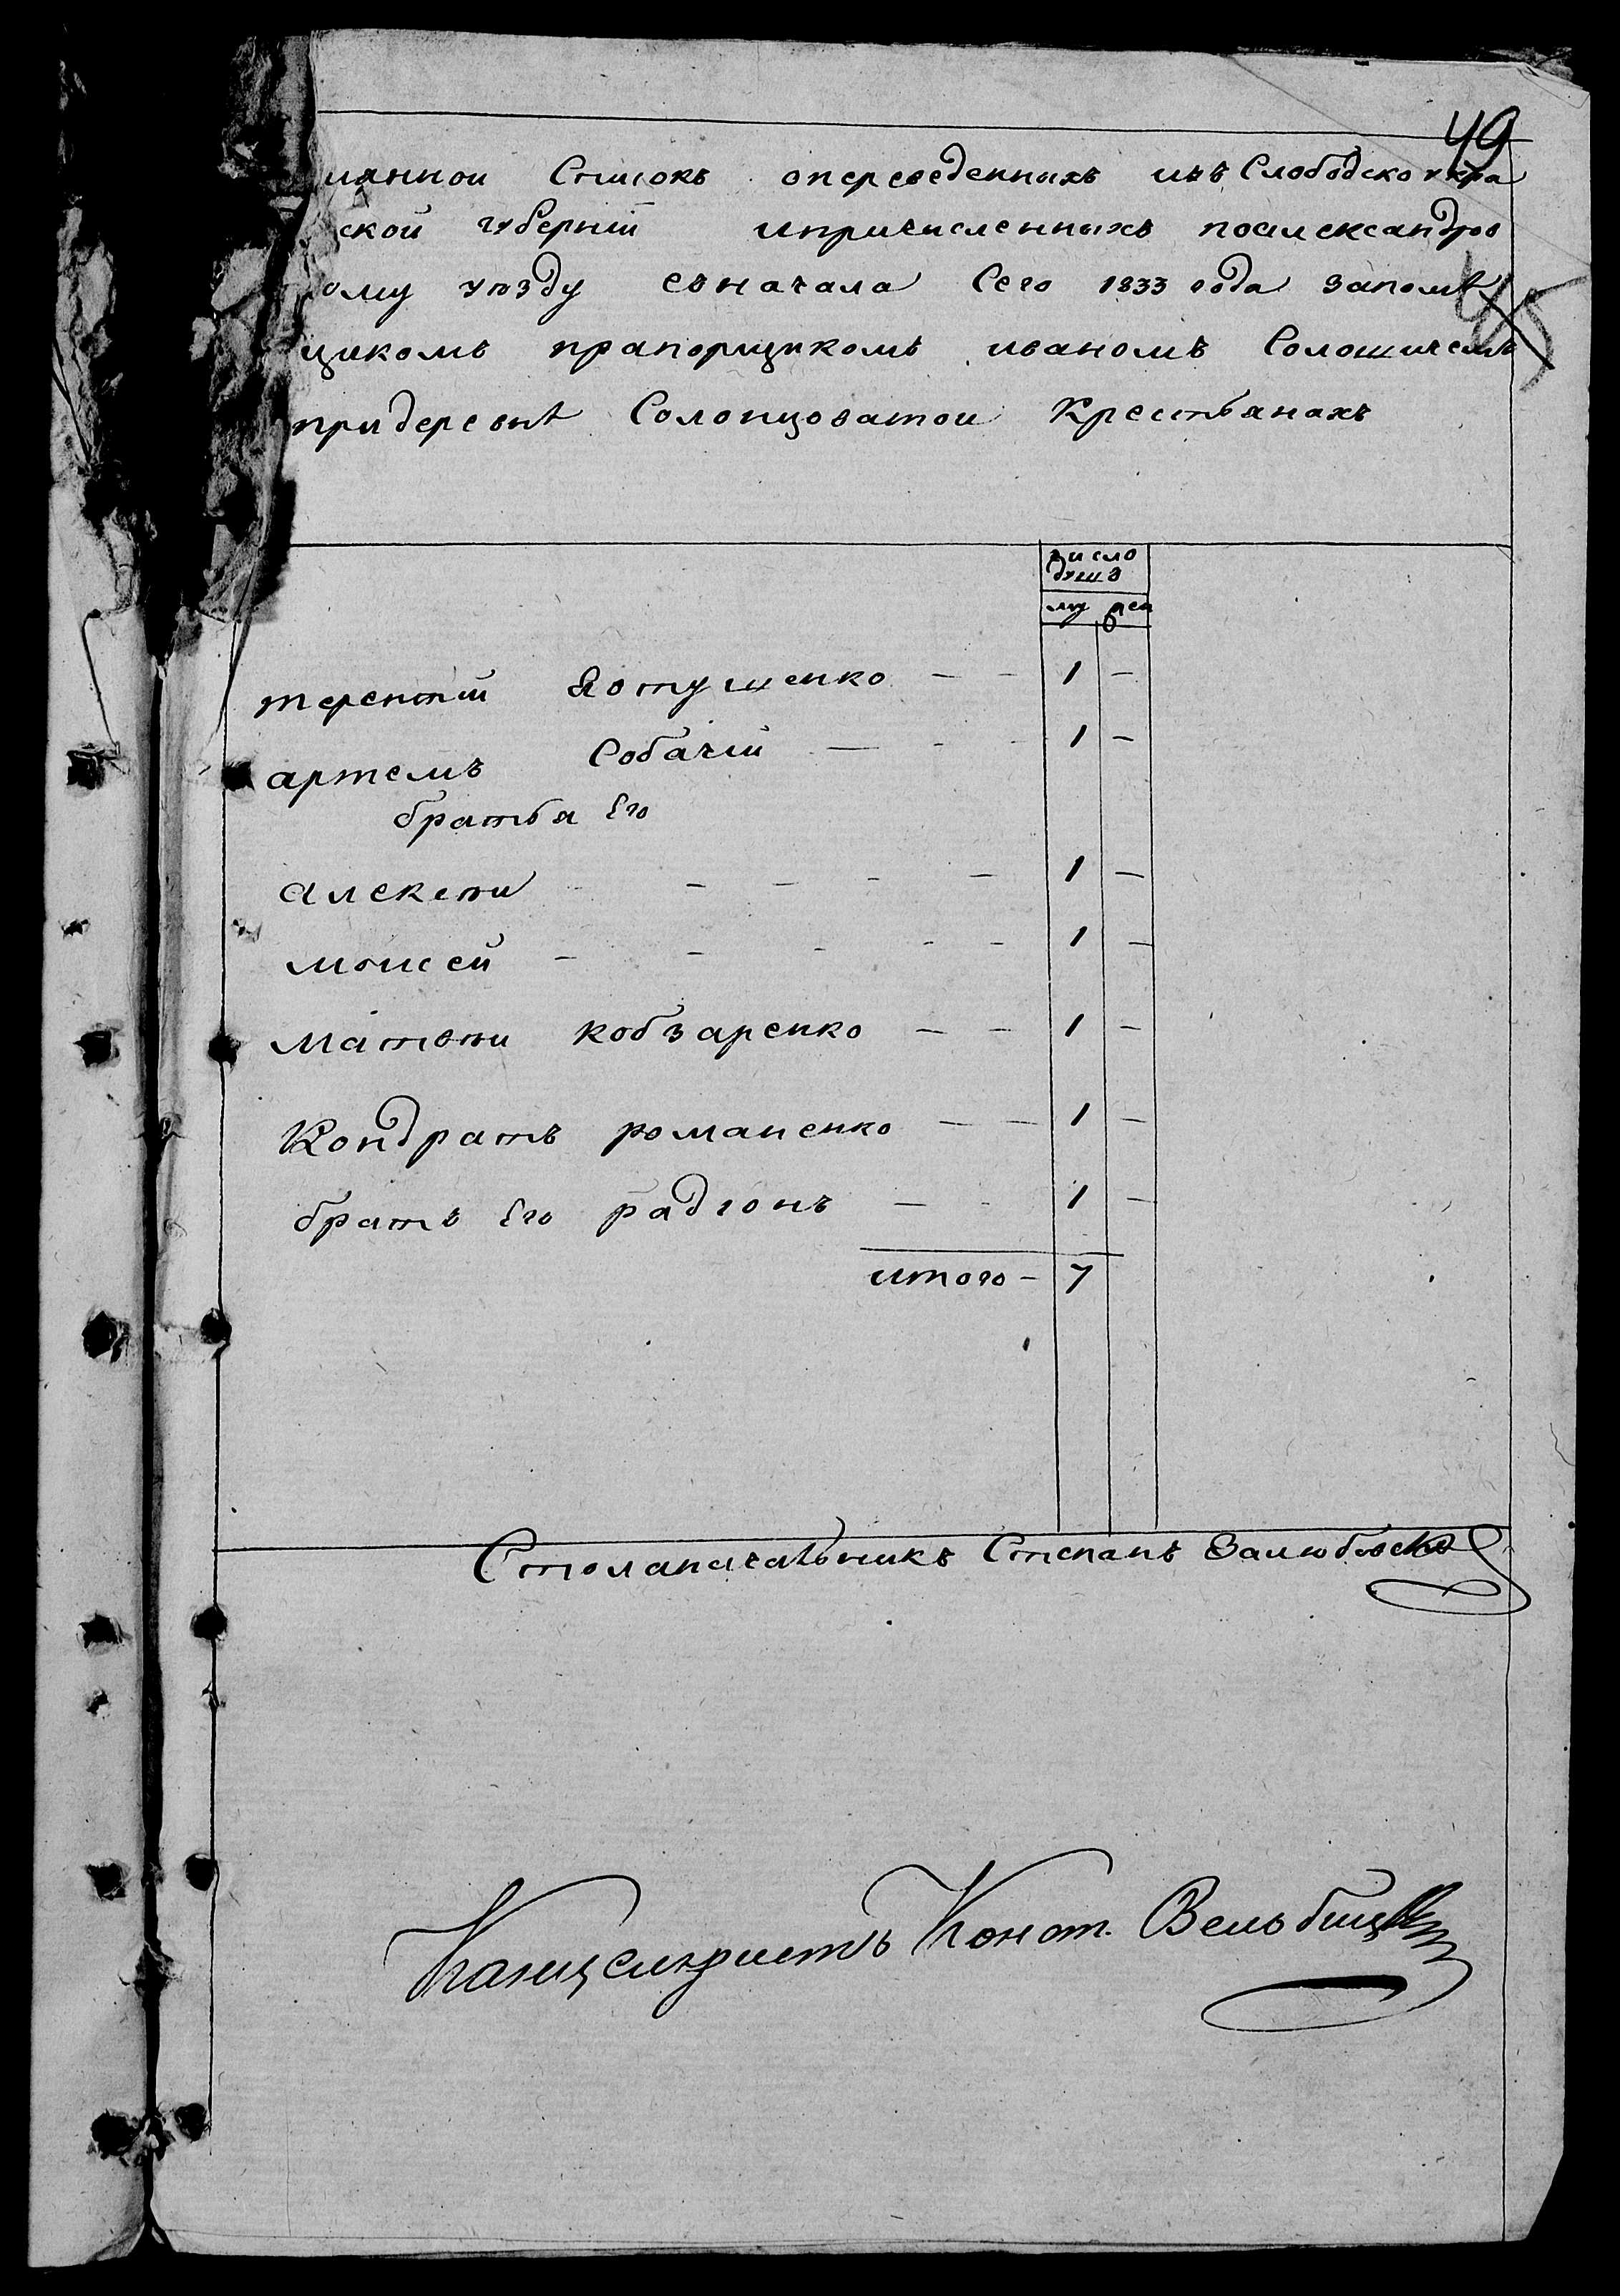 49
имяннои Списокъ опереведенныхъ изъ Слободскоукра
ской губерніи ипричисленныхъ поалександров
ому уѣзду съначала Сего 1833 года запомѣ
щикомъ прапорщикомъ иваномъ Солошичемъ
придеревнѣ Солонцоватои Крестьянахъ
число
душъ
му жен
терентіи Явтушенко — — 1 —
артемъ Собачіи — - - 1 —
братья Его
Алексѣи - - - - — 1 —
моисеи - - - - - 1 —
Матвѣи кобзаренко — — 1 —
Кондратъ романенко — — 1 —
братъ Его радіонъ — - 1 —
итого — 7
Столаначальникъ Степанъ Залюбовскій
Канцеляристъ Конст. Вельбицкій